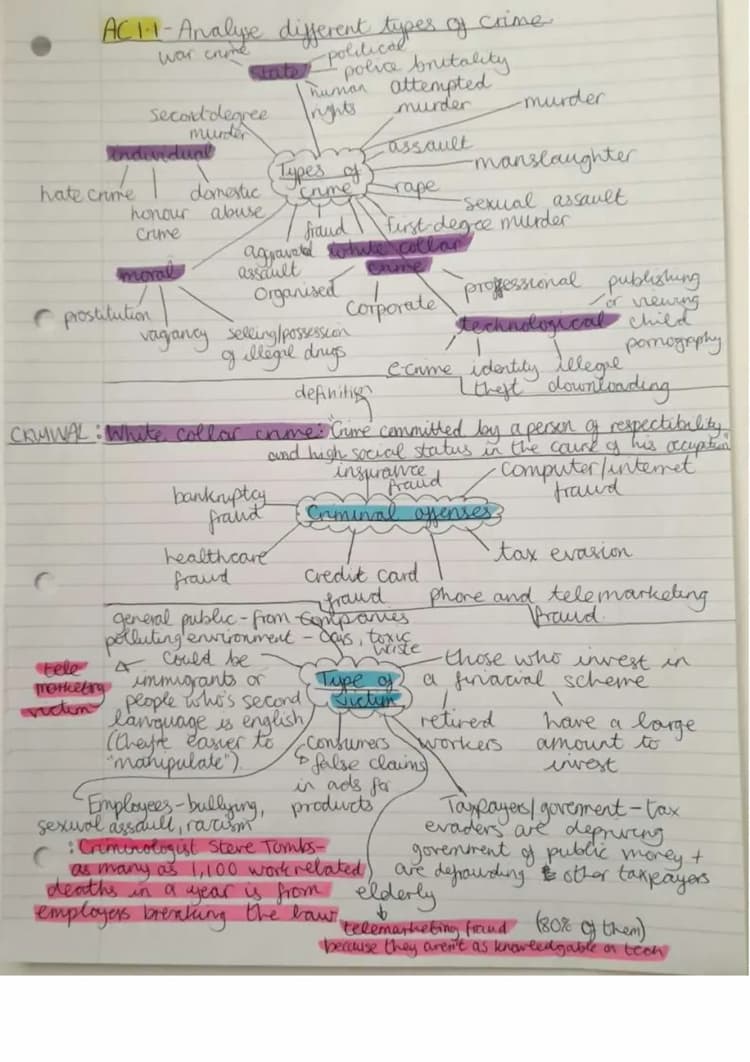 AC1.1 - Analyse different types of crime
war crime
political
state
police brutality
human rights
attempted murder
murder
second-degree murder
assault
individual
Types of crime
manslaughter
rape
hate crime
honour crime
domestic abuse
sexual assault
fraud
first-degree murder
aggravated assault
white collar crime
moral
organised
corporate
professional
publishing or viewing child pornography
prostitution
vagancy
selling/possession of illegal drugs
technological
e-crime
identity theft
illegal downloading
definition
CRIMINAL: White collar crime: "Crime committed by a person of respectibility
and high social status in the course of his occuption"
insurance fraud
computer/internet fraud
bankruptcy fraud
Criminal offenses
healthcare fraud
credit card fraud
phone and telemarketing fraud
tax evasion
general public - from companies
polluting environment - toxic waste
Could be
immigrants or
people who's second
language is english
(they're easier to
"manipulate")
tele marketing victim
Type of victim
those who invest in
a finacial scheme
retired workers
have a large
amount to
invest
Consumers
false claims
in ads for
products
Employees - bullying,
sexual assault, racism
: Criminologist Steve Tombs -
as many as 1,100 work related
deaths in a year is from
employers breaking the law
Taxpayers/goverment - tax
evaders are depriving
government of public money +
are defrauding other taxpayers
elderly
telemarketing fraud (80% of them)
because they aren't as knowledgable on tech